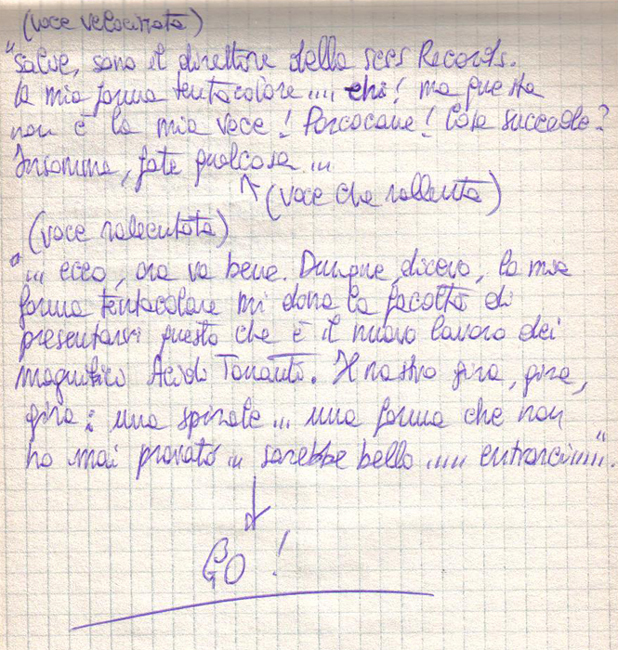 (voce velocizzata)
"Salve, sono il direttore della sces Records.
la mia forma tentacolare .... ehi! ma questa
non è la mia voce! Porcocane! Cosa succede?
Insomma, fate qualcosa ...
(voce che rallenta)
(voce rallentata)
"... ecco, ora va bene. Dunque, dicevo, la mia
forma tentacolare mi dona la facoltà di
presentarvi questo che è il nuovo lavoro dei
magnifici Acidi Tonanti. Il nastro gira, gira,
gira: una spirale... una forma che non
ho mai provato ... sarebbe bello .... entrarciiiii".
GO!